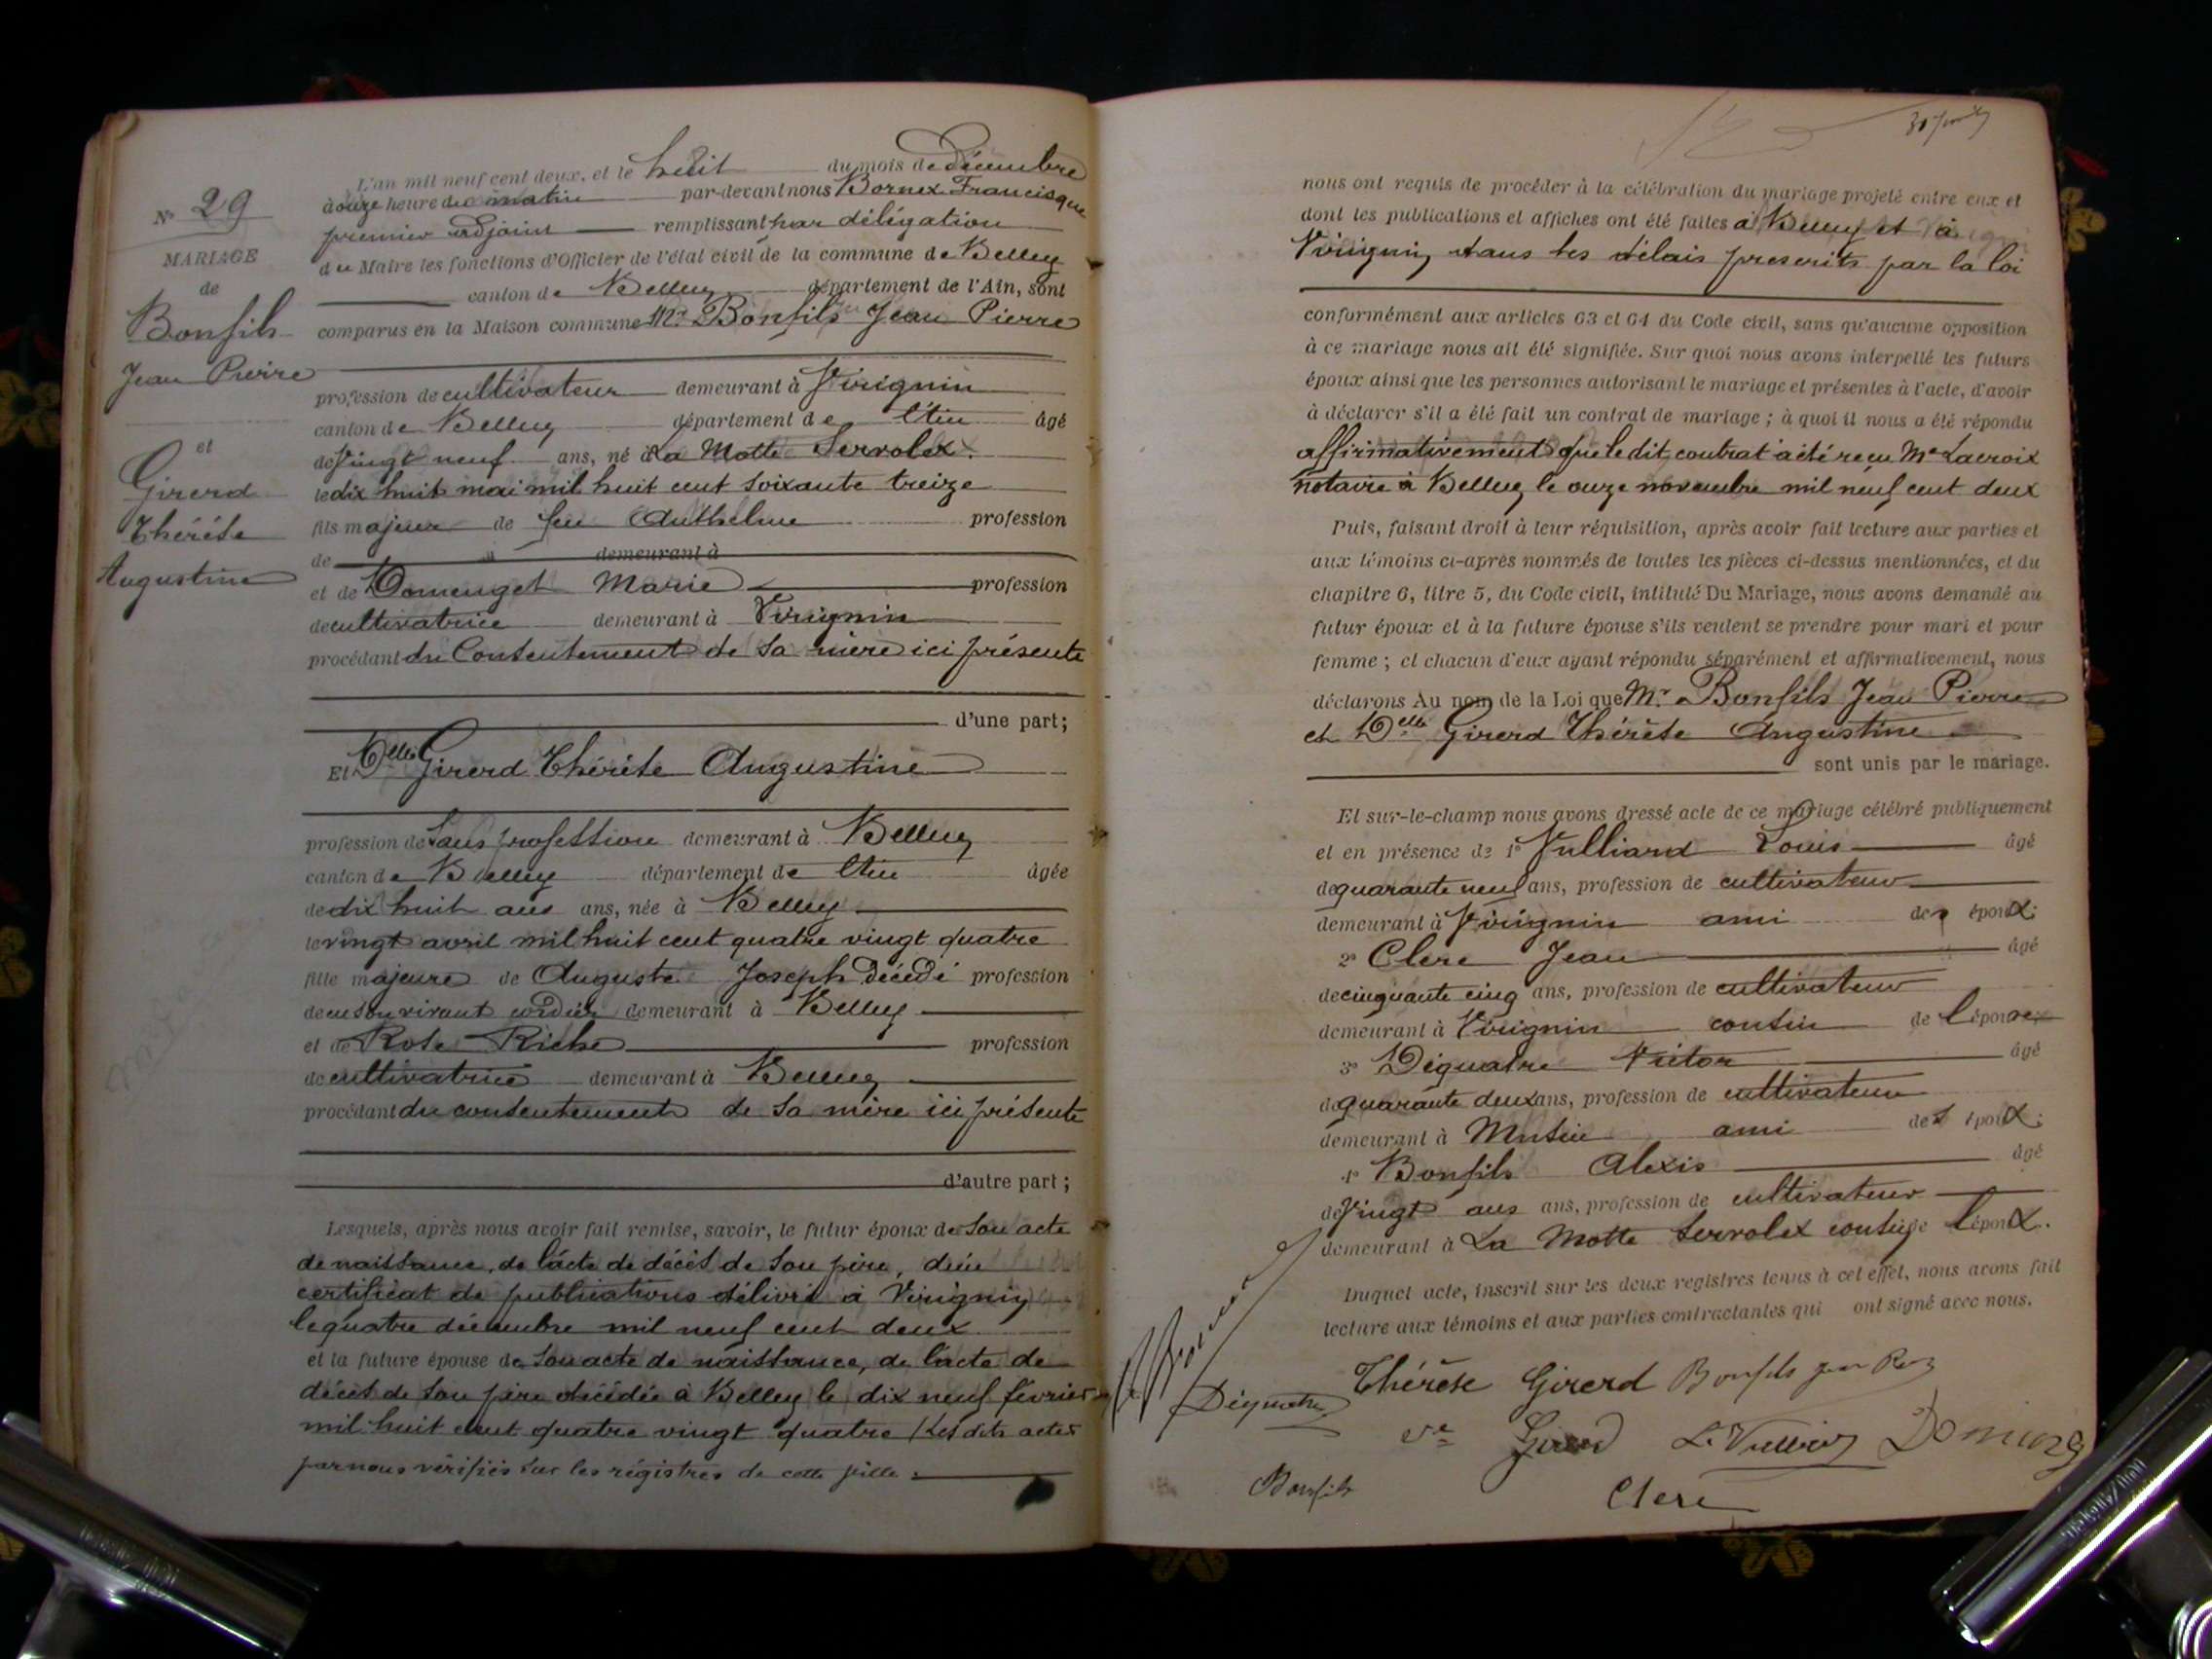 N° 29
MARIAGE
de
Bonfils
Jean Pierre
et
Girerd
Thérèse
Augustine
L'an mil neuf cent deux, et le huit du mois de Décembre
à onze heure du matin par-devant nous Bornex Francisque
premier adjoint remplissant par délégation
du Maire les fonctions d'Officier de l'état civil de la commune de Belley
canton de Belley département de l'Ain, sont
comparus en la Maison commune Mr. Bonfils Jean Pierre
profession de cultivateur demeurant à Virignin
canton de Belley département de l'Ain âgé
de Vingt neuf ans, né à La Motte Servolex.
le dix huit mai mil huit cent soixante treize
fils majeur de feu Anthelme profession
de demeurant à
et de Domenget Marie profession
de cultivatrice demeurant à Virignin
procédant du Consentement de sa mère ici présente
d'une part;
Et Delle Girerd Thérèse Augustine
profession de sans profession demeurant à Belley
canton de Belley département de l'Ain âgée
de dix huit ans ans, née à Belley
le vingt avril mil huit cent quatre vingt quatre
fille majeure de Auguste Joseph décédé profession
de en son vivant cordier demeurant à Belley
et de Rose Riche profession
de cultivatrice demeurant à Belley
procédant du consentement de sa mère ici présente
d'autre part;
Lesquels, après nous avoir fait remise, savoir, le futur époux de son acte
de naissance, de l'acte de décès de son père, d'un
certificat de publications délivré à Virignin
le quatre décembre mil neuf cent deux
et la future épouse de son acte de naissance, de l'acte de
décès de son père décédé à Belley le dix neuf février
mil huit cent quatre vingt quatre / Les dits actes
par nous vérifiés sur les régistres de cette ville.
nous ont requis de procéder à la célébration du mariage projeté entre eux et
dont les publications et affiches ont été faites à Belley et à
Virignin, dans les délais prescrits par la loi
conformément aux articles 63 et 64 du Code civil, sans qu'aucune opposition
à ce mariage nous ait été signifiée. Sur quoi nous avons interpellé les futurs
époux ainsi que les personnes autorisant le mariage et présentes à l'acte, d'avoir
à déclarer s'il a été fait un contrat de mariage; à quoi il nous a été répondu
affirmativement que le dit contrat a été reçu Me Lacroix
notaire à Belley le onze novembre mil neuf cent deux
Puis, faisant droit à leur réquisition, après avoir fait lecture aux parties et
aux témoins ci-après nommés de toutes les pièces ci-dessus mentionnées, et du
chapitre 6, titre 5, du Code civil, intitulé Du Mariage, nous avons demandé au
futur époux et à la future épouse s'ils veulent se prendre pour mari et pour
femme; et chacun d'eux ayant répondu séparément et affirmativement, nous
déclarons Au nom de la Loi que Mr. Bonfils Jean Pierre
et Delle Girerd Thérèse Augustine
sont unis par le mariage.
Et sur-le-champ nous avons dressé acte de ce mariage célébré publiquement
et en présence de 1° Vulliard Louis âgé
de quarante neuf ans, profession de cultivateur
demeurant à Virignin ami des époux.
2° Clerc Jean âgé
de cinquante cinq ans, profession de cultivateur
demeurant à Virignin cousin de l'épouse
3° Déquatre Victor âgé
de quarante deux ans, profession de cultivateur
demeurant à Musin ami des époux.
4° Bonfils Alexis âgé
de Vingt ans ans, profession de cultivateur
demeurant à La Motte Servolex cousin de l'époux.
Duquel acte, inscrit sur les deux registres tenus à cet effet, nous avons fait
lecture aux témoins et aux parties contractantes qui ont signé avec nous.
Thérèse Girerd Bonfils
Déquatre
ve Girerd L. Vulliard
Bonfils
Clerc